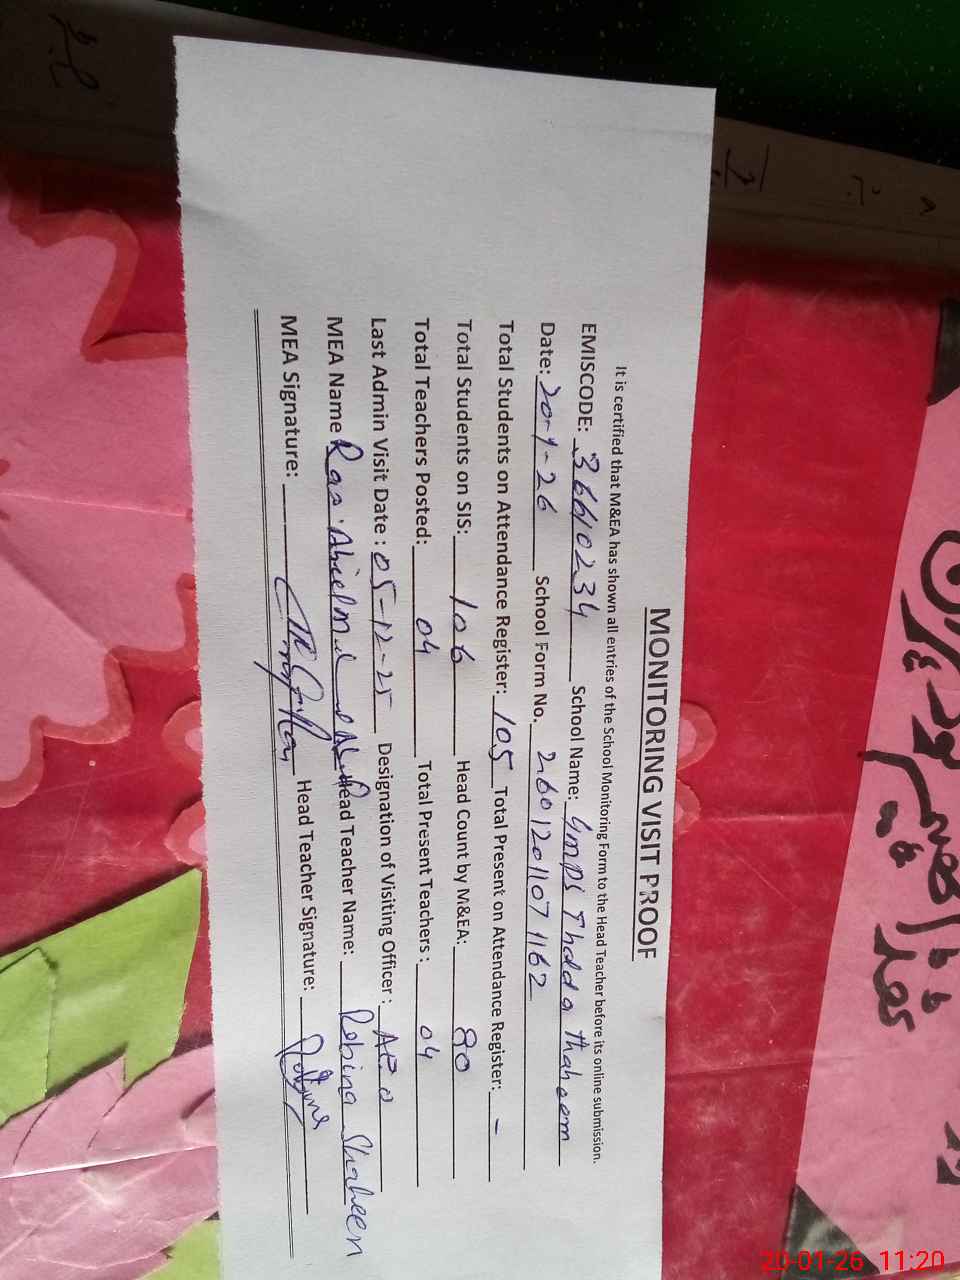 MONITORING VISIT PROOF
It is certified that M&EA has shown all entries of the School Monitoring Form to the Head Teacher before its online submission.
EMISCODE: 36610234 School Name: GMPS Thadda Thaheem
Date: 20-1-26 School Form No. 2601201071162
Total Students on Attendance Register: 105 Total Present on Attendance Register: -
Total Students on SIS: 106 Head Count by M&EA: 80
Total Teachers Posted: 04 Total Present Teachers: 04
Last Admin Visit Date: 05-12-25 Designation of Visiting Officer: AEO
MEA Name Head Teacher Name: Robina Shaheen
MEA Signature: Head Teacher Signature: Robina
20-01-26 11:20